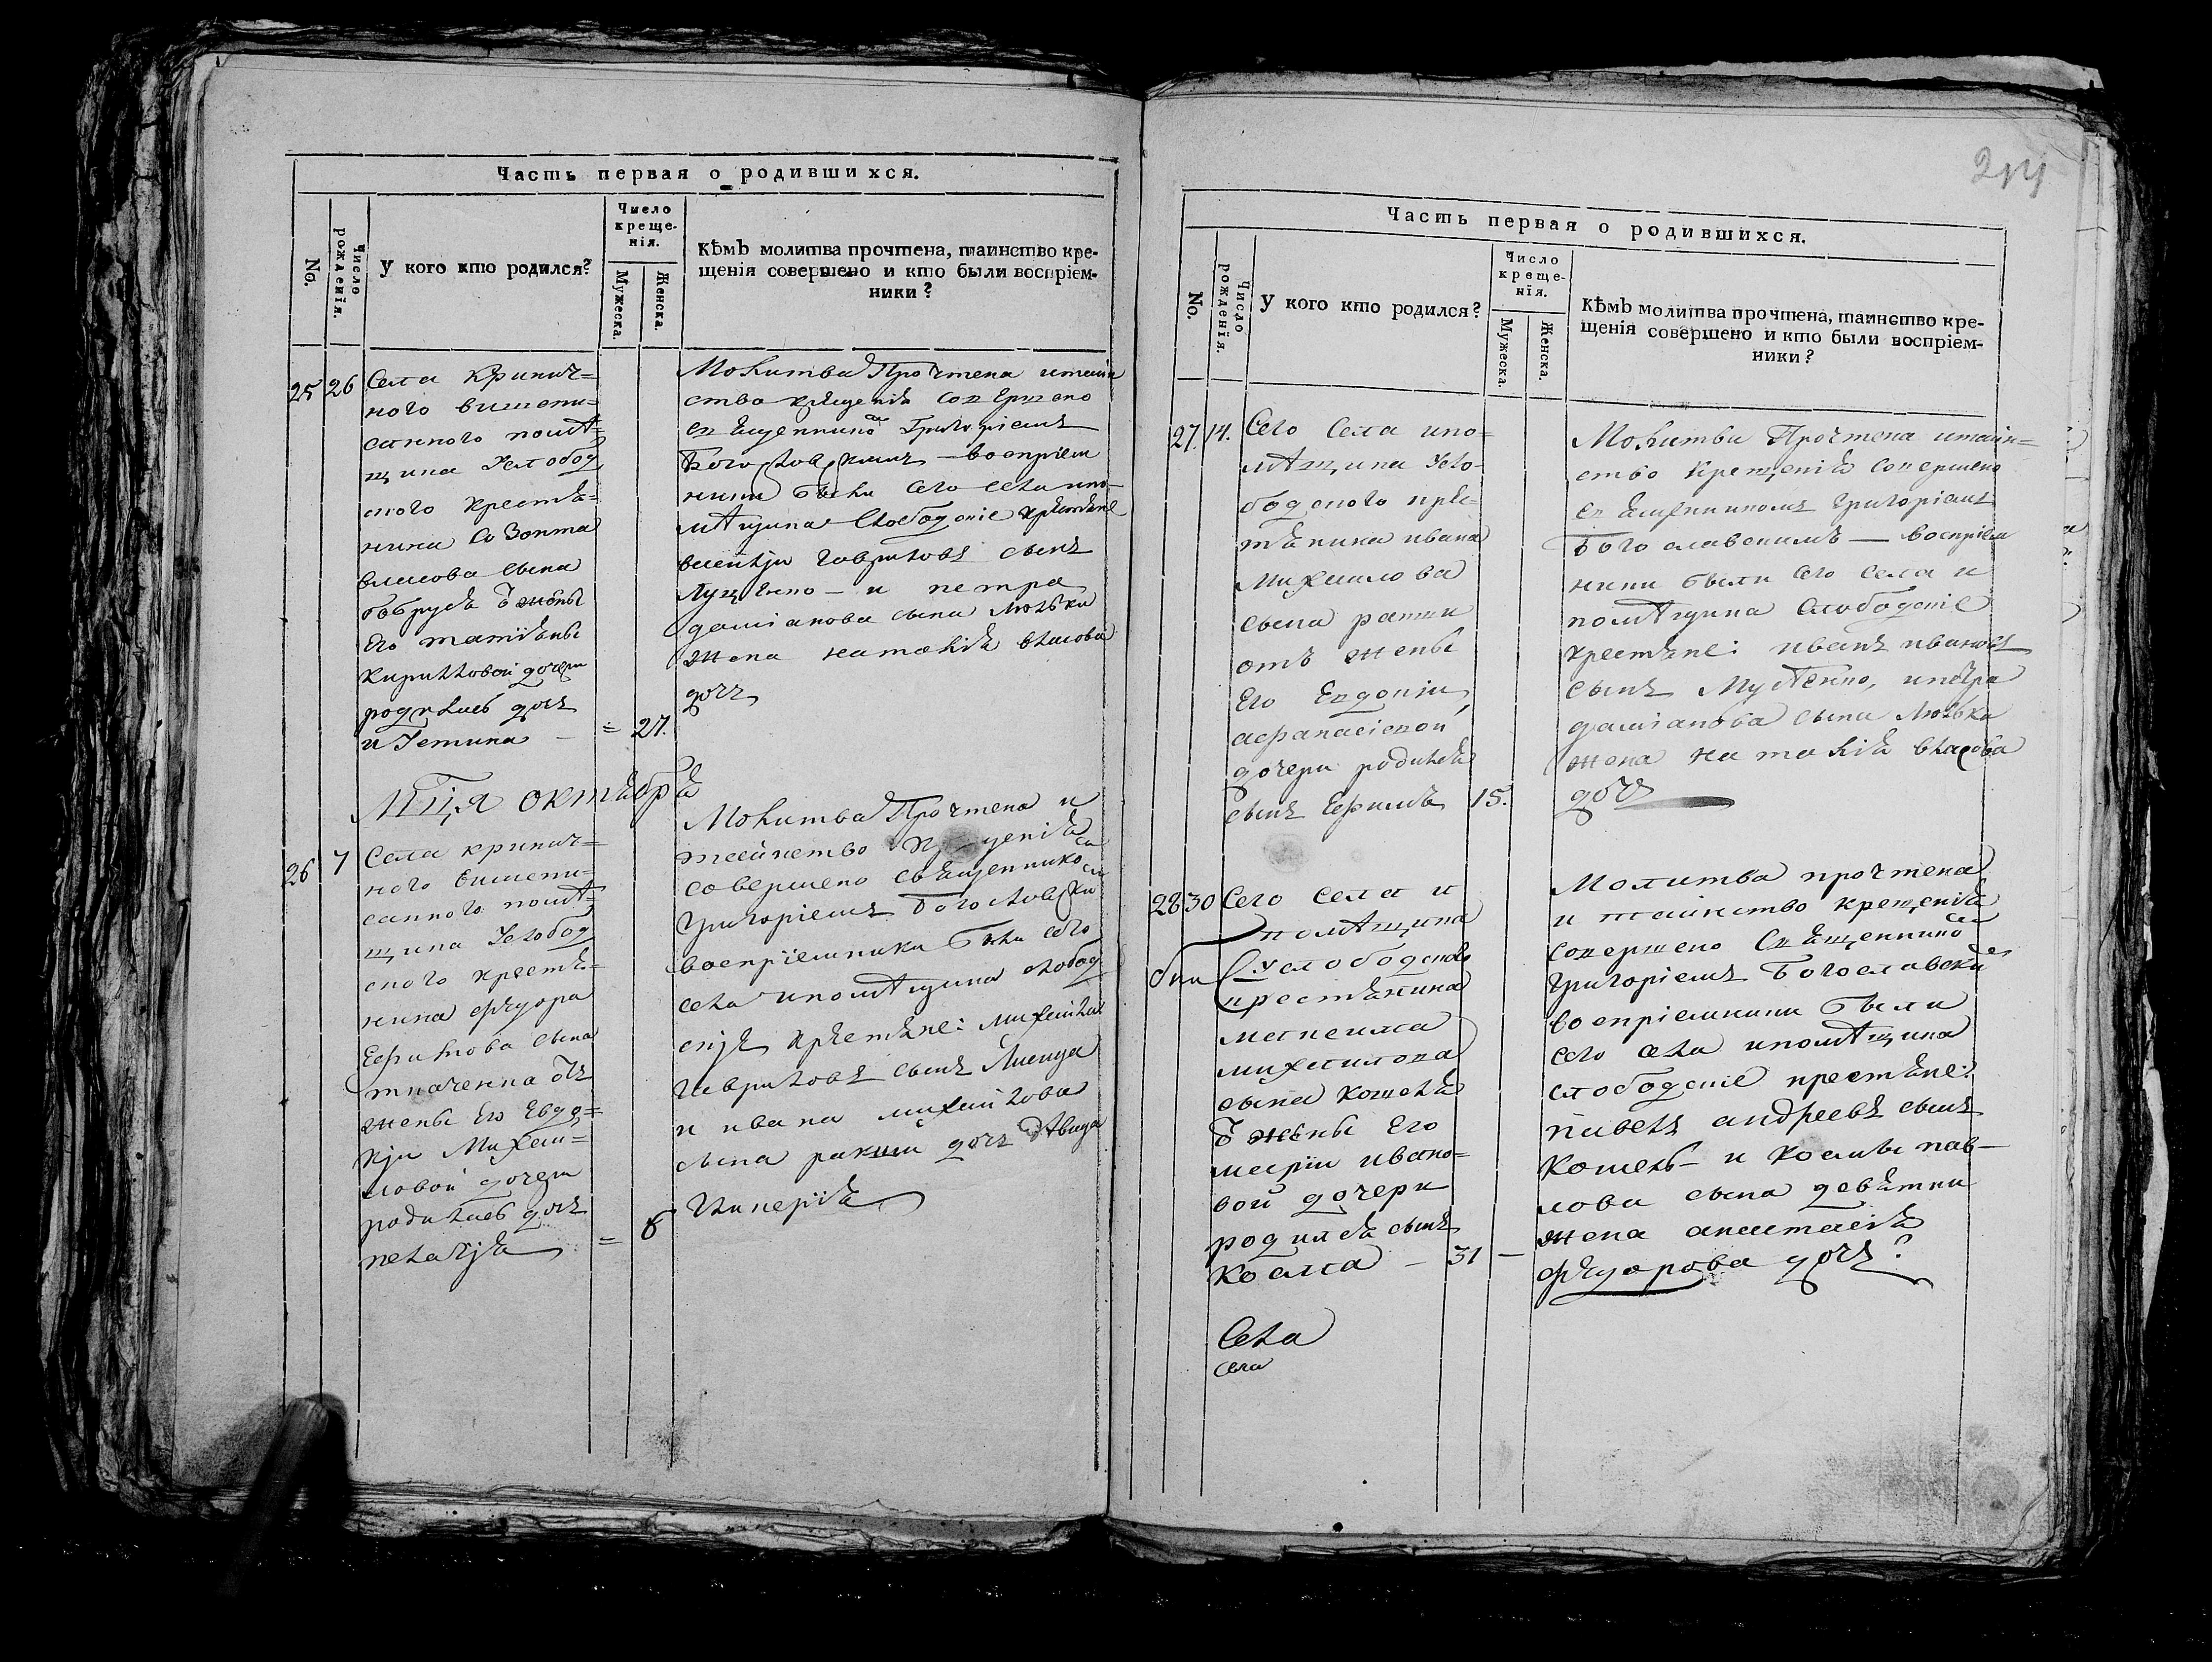 Часть первая о родившихся.
No.
Число рожденїя.
У кого кто родился?
Число креще-нїя.
Мужеска.
Женска.
Кѣмъ молитва прочтена, таинство кре-
щенія совершено и кто были воспріем-
ники?
25
26
Села кринич=
ного вишепи=
санного помѣ=
щика Услобод
ского крестья=
нина Созонта
власова сына
жены
Его татіяны
Кирилловой дочери
родилась дочь
иУстина
= 27.
Молитва Прочтена итаин
ство крещенія совершено
священникомъ Григоріемъ
Богословскимъ – воспріем
ники были сего села ипо-
мѣщика слободскіе крестьяне
гавриловъ сынъ
– и петра
даміанова сына
жена наталія власова
дочь
Мц҃я октября
26
7
Села кринич=
ного вишепи=
санного помѣ=
щика Услобод
ского крестья=
нина федора
Ефимова сына
ткаченка отъ
жены Его Евдо=
кіи Михаи=
ловой дочери
родилась дочь
пелагія
= 8
Молитва Прочтена и
таинство крещенія
совершено священникомъ
Григоріемъ Богословским
воспріемники были сего
села ипомѣщика слобод
скіе крестьяне: михаилъ
гавриловъ сынъ
и ивана михаилова
сына дочь дѣвица
Гликерія
214
Часть первая о родившихся.
No.
Число рожденїя.
У кого кто родился?
Число креще-нїя.
Мужеска.
Женска.
Кѣмъ молитва прочтена, таинство кре-
щенія совершено и кто были воспріем-
ники?
27.
14.
Сего Села ипо=
мѣщика Усло-
бодского крес-
тьянина ивана
Михаилова
сына
отъ жены
Его Евдокіи
афанасіевой
дочери родился
сынъ Ефимъ
15.
Молитва Прочтена итаин=
ство Крещенія совершено
священникомъ григоріемъ
Богославскимъ — воспріем
ники были сего села и
помѣщика слободскіе
крестьяне: иванъ ивановъ
сынъ ипетра
даміанова сына
жена наталія власова
дочь
28
30
Сего села и
помѣщика
Услободского
крестьянина
михаилова
сына кошеля
жены Его
маріи ивано=
вой дочери
родился сынъ
Косма – 31 –
Молитва прочтена
и таинство крещенія
совершено Священником
григоріемъ Богославским
воспріемники были
сего села ипомѣщика
слободскіе крестьяне:
павелъ андреевъ сынъ
Кошель – и Космы пав-
лова сына
жена анастасія
федорова дочь
Села
села